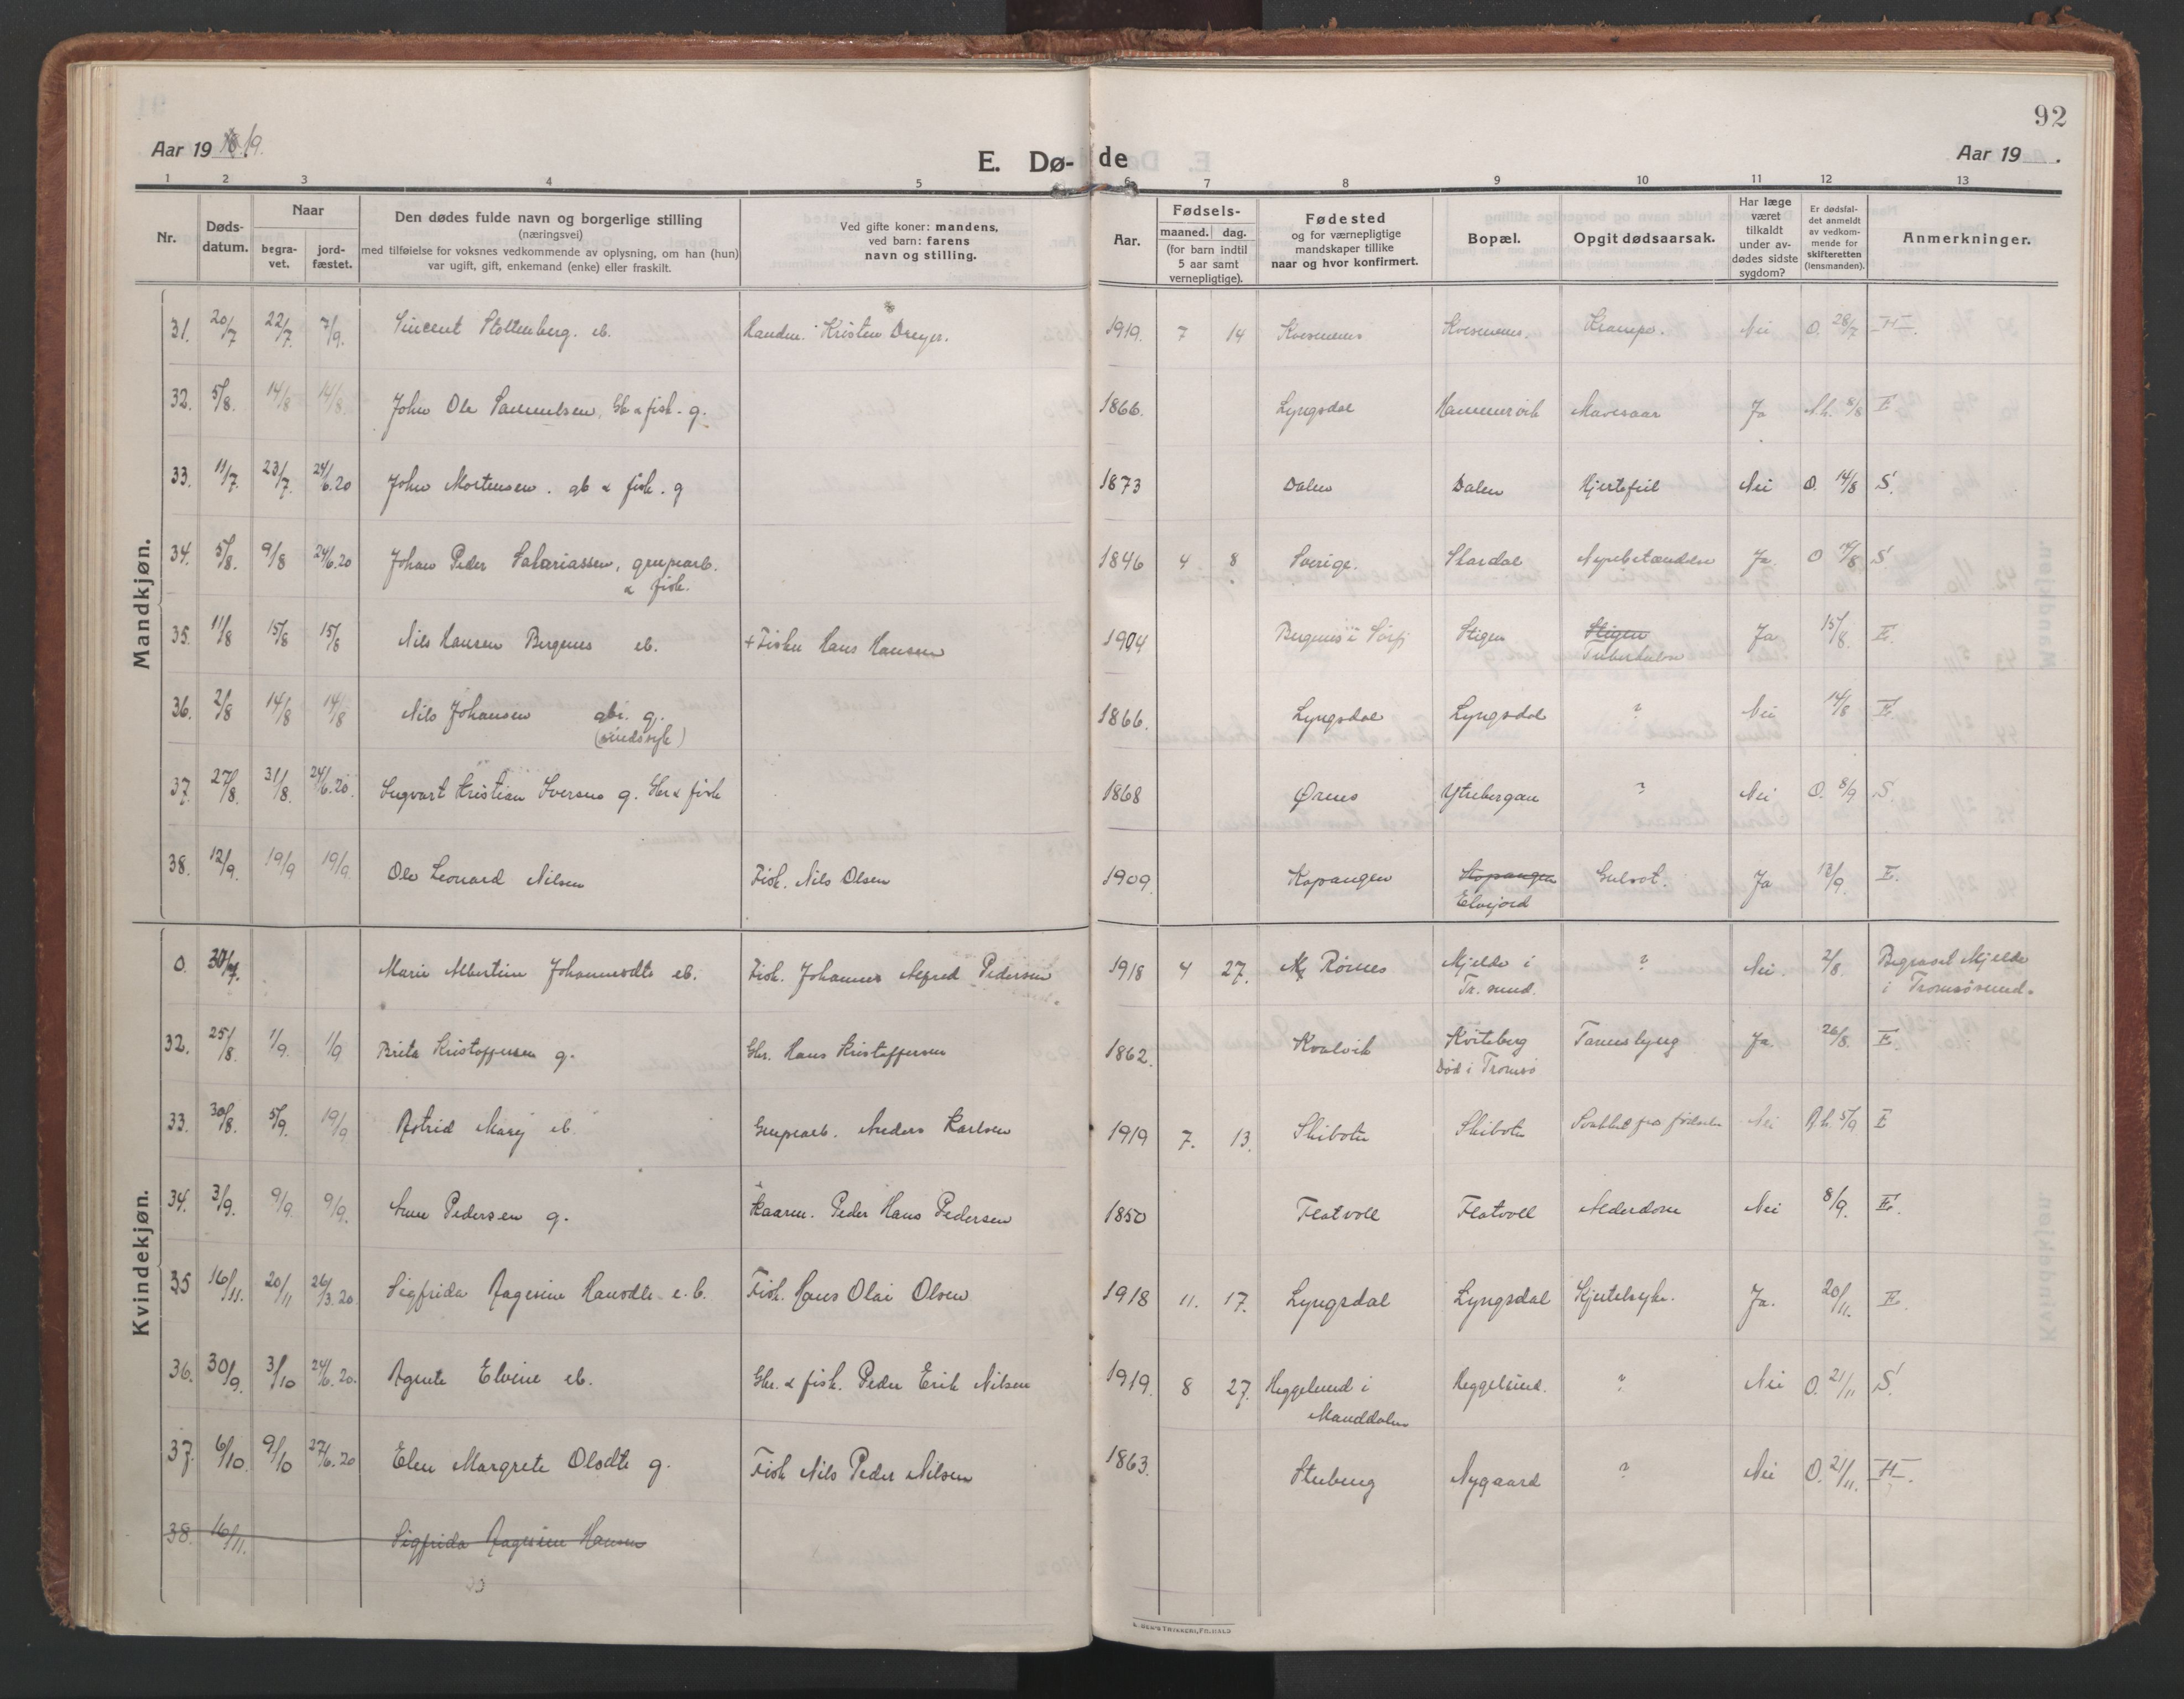 92
Aar 19 19.
E. Dø-de
Aar 19 .
1 2 3 4 5 6 7 8 9 10 11 12 13
Nr.
Døds-
datum.
Naar
begra-
vet.
jord-
fæstet.
Den dødes fulde navn og borgerlige stilling
(næringsvei)
med tilføielse for voksnes vedkommende av oplysning, om han (hun)
var ugift, gift, enkemand (enke) eller fraskilt.
Ved gifte koner: mandens,
ved barn: farens
navn og stilling.
Aar.
Fødsels-
maaned. dag.
(for barn indtil
5 aar samt
vernepligtige).
Fødested
og for værnepligtige
mandskaper tillike
naar og hvor konfirmert.
Bopæl.
Opgit dødsaarsak.
Har læge
været
tilkaldt
under av-
dødes sidste
sygdom?
Er dødsfal-
det anmeldt
av vedkom-
mende for
skifteretten
(lensmanden).
Anmerkninger.
Mandkjøn.
31. 20/7 22/7. 7/9. Stoltenberg. eb. Kristen Dreyer. 1919. 7 14 Krampe. Nei O. 28/7 H.
32. 5/8. 14/8 14/8. John Ole Samuelsen, Gbr & fisk. g. 1866. Lyngsdal Hammervik Mavesaar Ja 8/8 E
33. 11/7. 23/7. 24/6.20 John Mortensen. gb & fisk. g 1873 Dalen Dalen Hjertefeil Nei O. 14/8 S.
34. 5/8. 9/8 24/6.20 Johan Peder Sakariassen, grupearb.
& fisk. 1846 4 8 Sverige. Skardal Nyrebetændelse Ja. O 14/8 S
35. 11/8 15/8 15/8 Nils Hansen Bergenes eb. + Fisker Hans Hansen 1904 Bergenes i Sørfj Stigen Stigen
Tuberkulose Ja 15/8. E.
36. 2/8 14/8 14/8 Nils Johansen gbr. g.
(sindssyk) 1866. Lyngsdal Lyngsdal ? Nei 14/8 E.
37. 27/8. 31/8. 24/6.20. Sigvart Kristian Iversen g. Gbr & fisk 1868 Ørnes Ytrebergan ? Nei O. 8/9 S.
38. 12/9. 19/9 19/9. Ole Leonard Nilsen Fisk. Nils Olsen 1909. Kopangen Kopangen
Elvejord Gulsot. Ja 13/9. E.
Kvindekjøn.
0. 30/7. Marie Albertine Johannesdtr eb. Fisk. Johannes Alfred Pedersen 1918 4 27. Rørnes Mjelde i
Tr. sund. ? Nei. 2/8. Begravet Mjelde
i Tromsøsund.
32. 25/8. 1/9. 1/9 Brita Kristoffersen g. Gbr. Hans Kristoffersen 1862. Kvalvik Kviteberg
Død i Tromsø Tarmslyng Ja. 26/8. E.
33. 30/8. 5/9. 19/9 Astrid Marej eb. Grupearb. Anders Karlsen 1919 7. 13. Skibotn Skibotn Svakhet fra fødselen Nei 5/9 E
34. 3/9. 9/9. 9/9. Anne Pedersen g. Kaarm. Peder Hans Pedersen 1850 Flatvoll Flatvoll Alderdom Nei 8/9. E.
35 16/11. 20/11 26/3.20. Sigfrida Aagesine Hansdtr e.b. Fisk. Hans Olai Olsen 1918 11. 17. Lyngsdal Lyngsdal Kjertelsyke. Ja. 20/11. E.
36. 30/9. 3/10 24/6.20. Agnete Elvine eb. Gbr. & fisk. Peder Erik Nilsen 1919. 8 27. Heggelund i
Manddalen Heggelund. ? Nei O. 21/11 S.
37. 6/10. 9/10 27/6.20 Elen Margrete Olsdtr g. Fisk Nils Peder Nilsen 1863. Stubeng Nygaard ? Nei O. 21/11. H.
38. 16/11. Sigfrida Aagesine Hansen